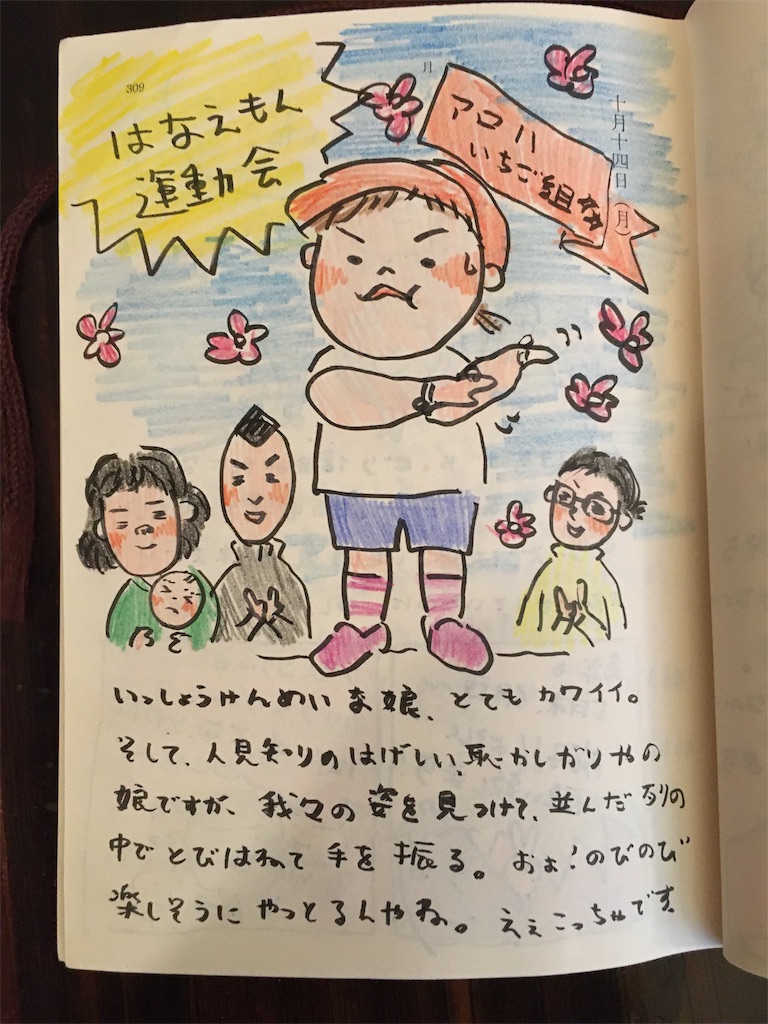 309
月
十月十四日（月）
はなえもん
運動会
アコハ
いちご組な
いっしょうけんめいな娘、とてもカワイイ。
そして、人見知りのはげしい、恥かしがりやの
娘ですが、我々の姿を見つけて、並んだ列の
中でとびはねて手を振る。おぉ！のびのび
楽しそうにやっとるんやね。ええこっちゃです